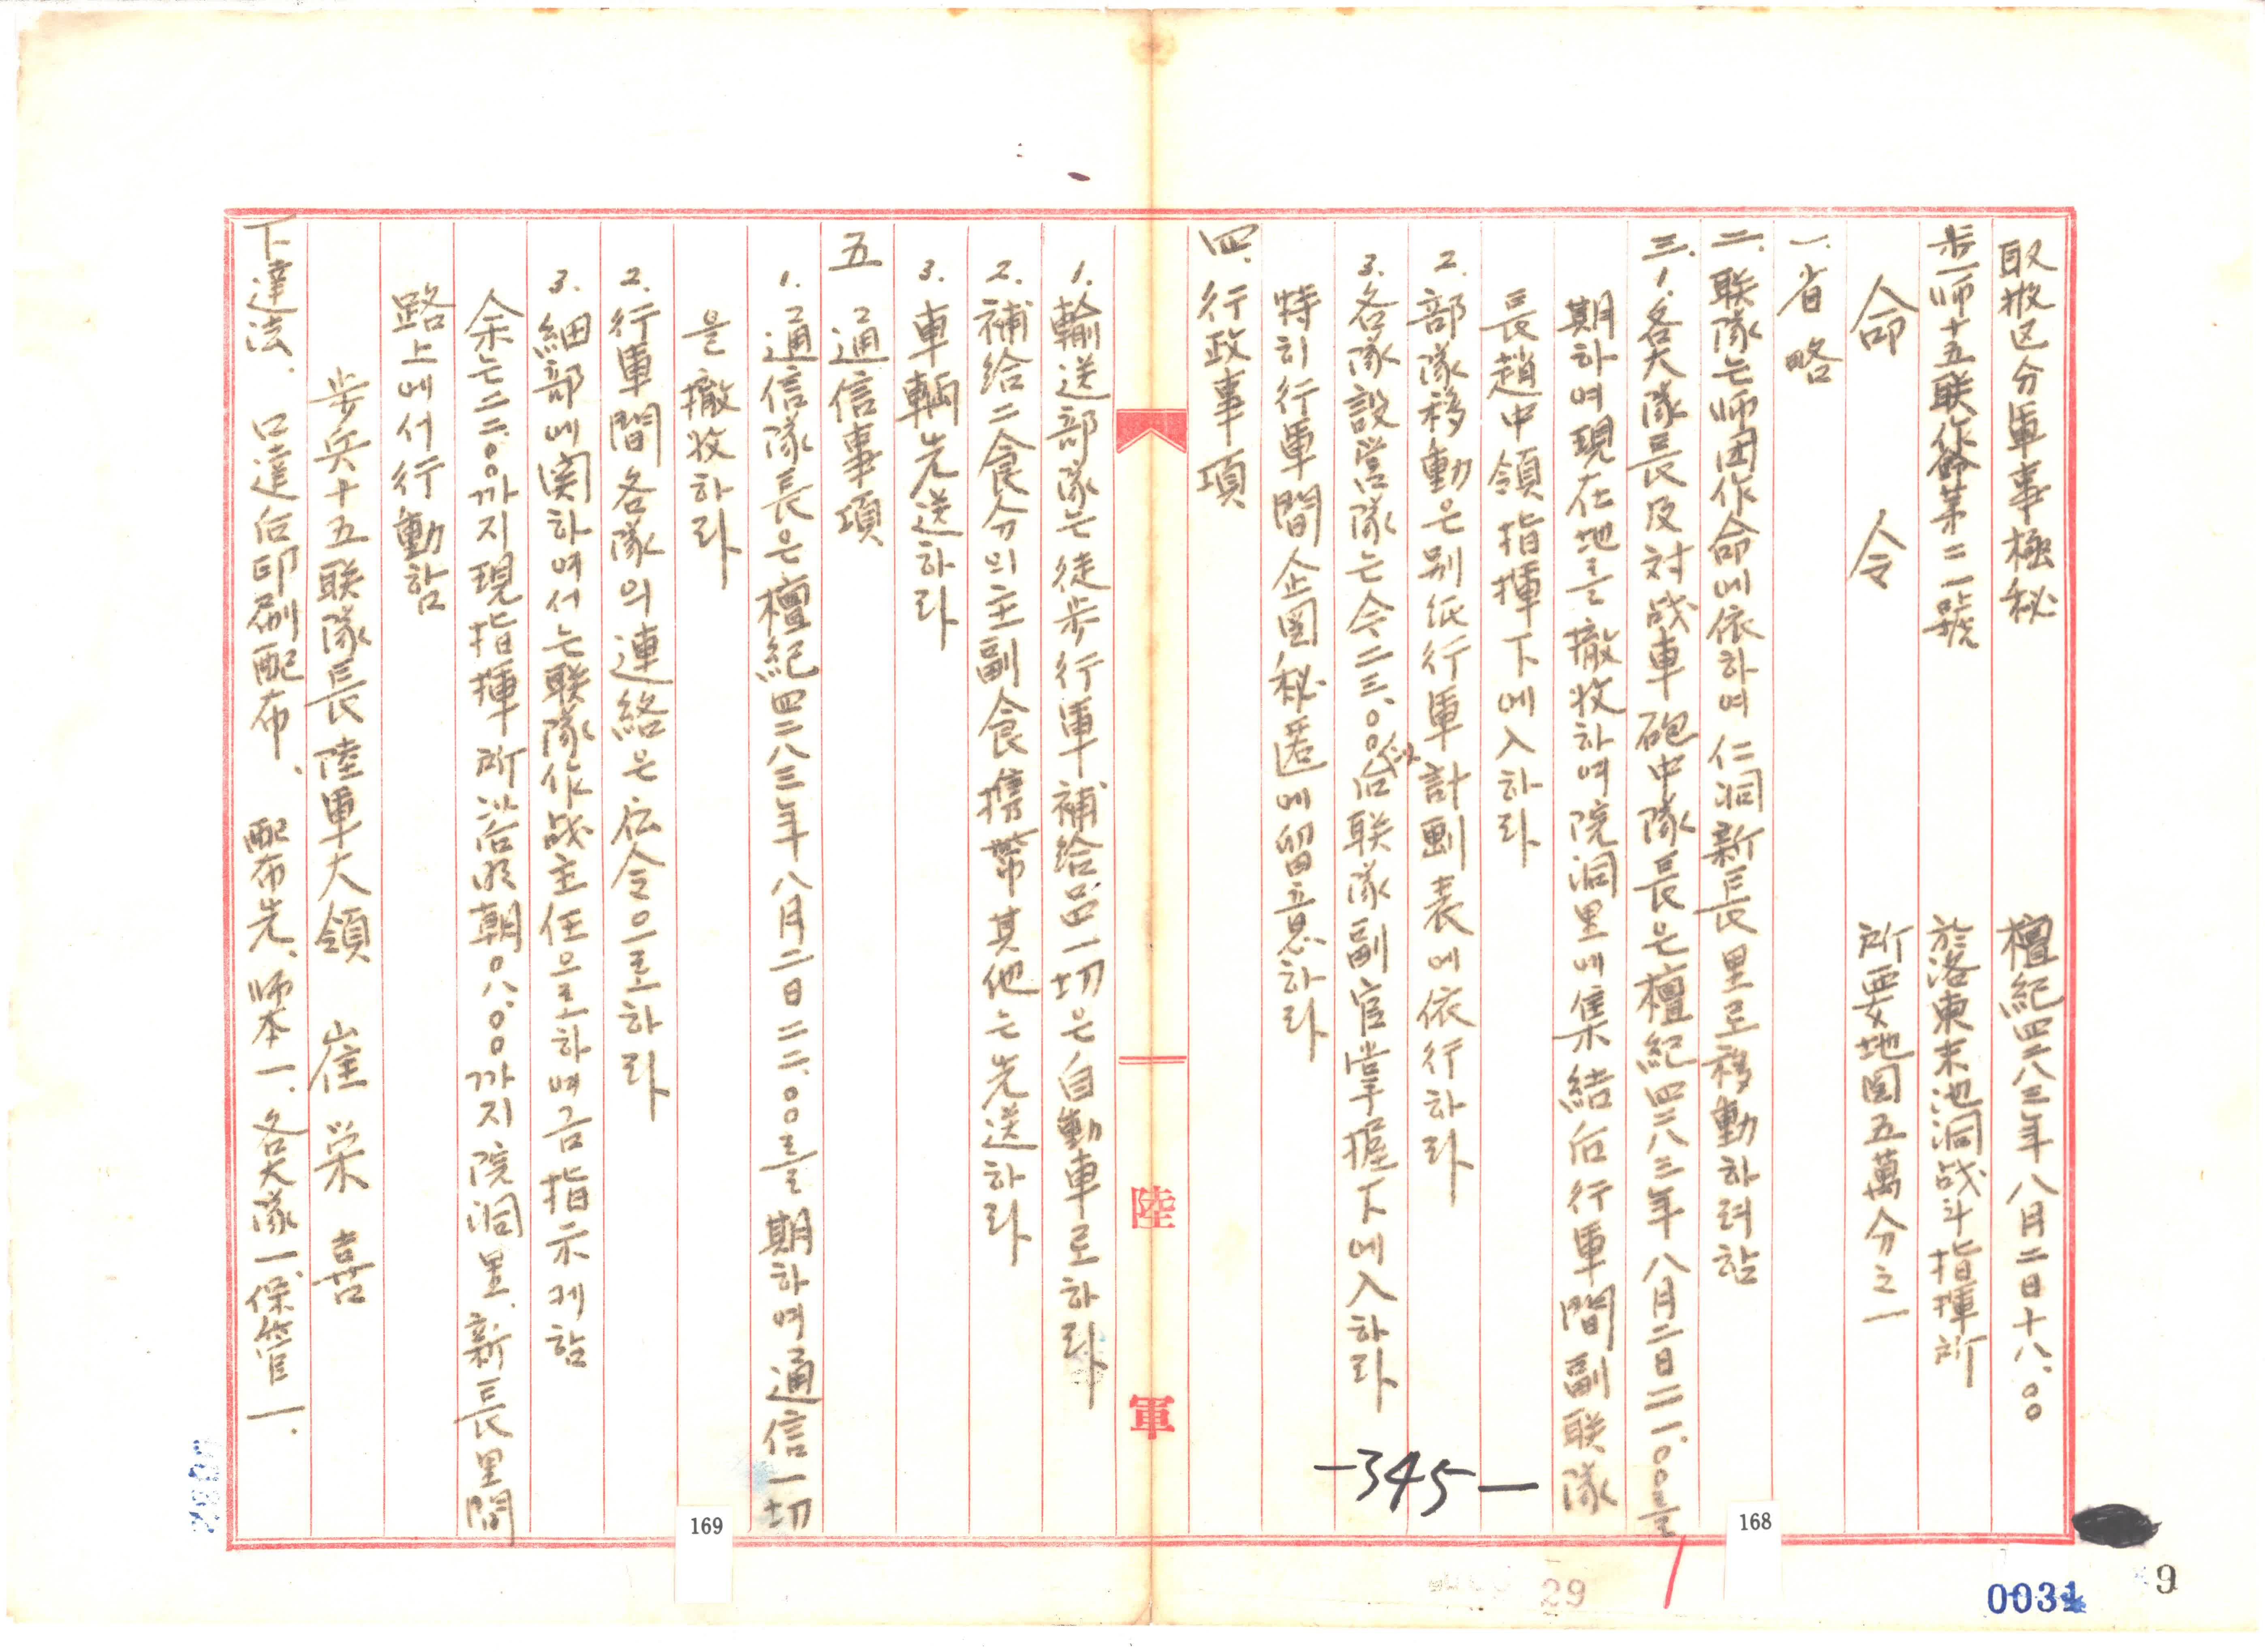 取扱区分軍事極秘 檀紀四二八三年八月二日十八.〇〇
步一师十五联作命第二一號 於洛東末池洞战斗指揮所
命 令 所要地図五萬分之一
一. 省略
二. 联隊는师团作命에依하여仁洞新長里로移動하려함
三. 1. 各大隊長及対战車砲中隊長은檀紀四二八三年八月二日二一.〇〇를
期하여現在地를撤收하여院洞里에集結后行軍間副联隊
長趙中領指揮下에入하라
2. 部隊移動은別紙行軍計劃表에依行하라
3. 各隊設営隊는今二三.〇〇联隊副官掌握下에入하라
特히行軍間企図秘匿에留意하라
四. 行政事項
1. 輸送部隊는徒步行軍補給品一切은自動車로하라
2. 補給二食分의主副食携帶其他는先送하라
3. 車輌先送하라
五 通信事項
1. 通信隊長은檀紀四二八三年八月二日二二.〇〇를期하여通信一切
을撤收하라
2. 行軍間各隊의連絡은伝令으로하라
3. 細部에関하여서는联隊作战主任으로하여금指示케함
余는二二.〇〇까지現指揮所 朝〇八.〇〇까지院洞里.新長里間
路上에서行動함
步兵十五联隊長陸軍大領 崔栄喜
下達法. 口達后印刷配布、配布先、师本一.各大隊一.保管一.
陸軍
-345-
168
169
29
0031
9